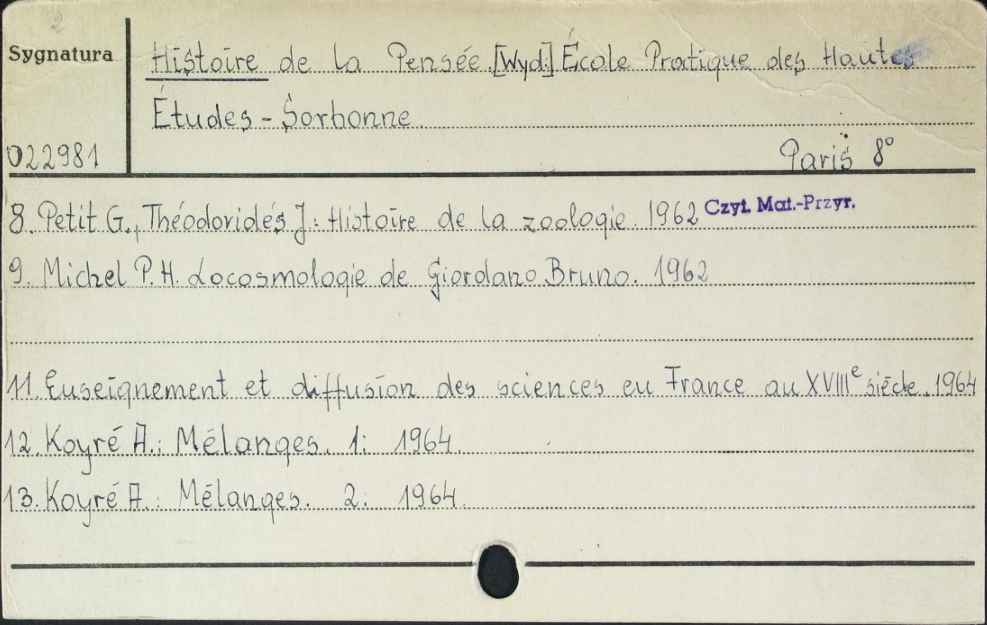 2
Sygnatura
Histoire de la Pensée. [Wyd:] École Pratique des Hautes
Études - Sorbonne
022981
Paris 8°
8. Petit G., Théodoridés J.: Histoire de la zoologie. 1962 Czyt. Mat.-Przyr.
9. Michel P. H. Locosmologie de Giordano Bruno. 1962
11. Euseignement et diffusion des sciences eu France au XVIIIe siècle. 1964
12. Koyré A.: Mélanges. 1: 1964.
13. Koyré A.: Mélanges. 2: 1964.